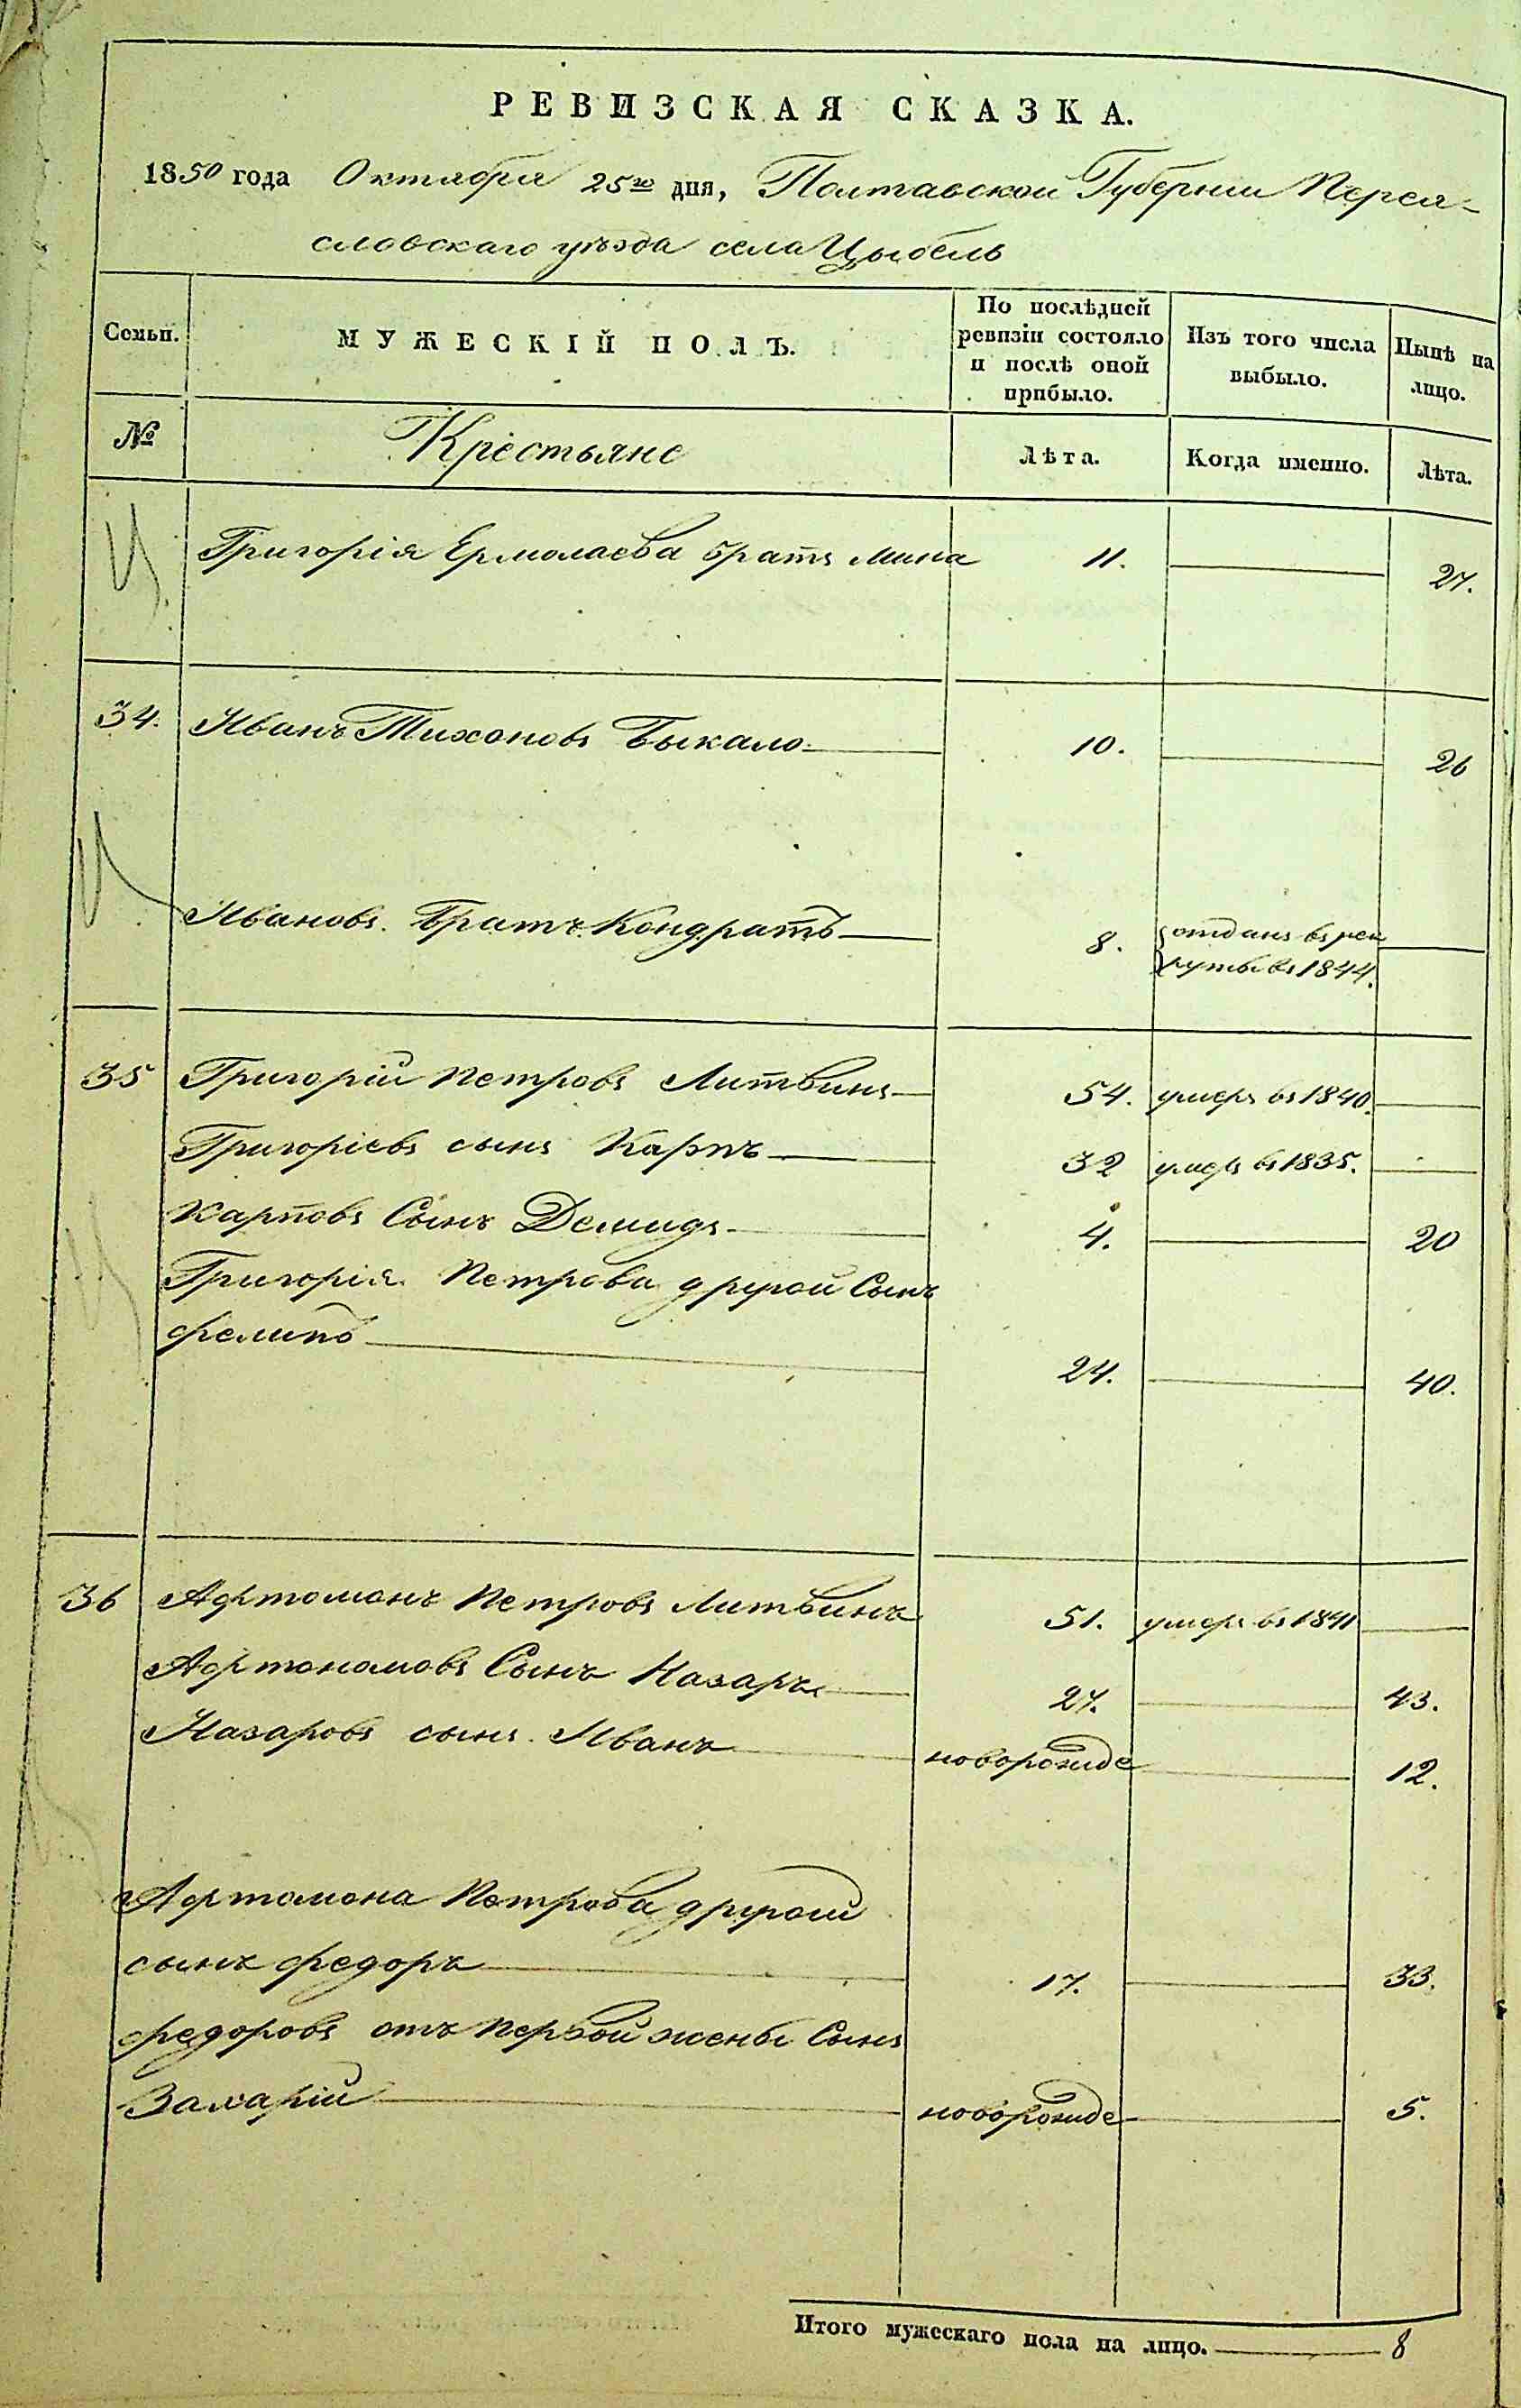 РЕВИЗСКАЯ СКАЗКА.
1850 года Октября 25го дня, Полтавской Губернии Перея-
словскаго уѣзда села Цыбель
Семьи. МУЖЕСКІЙ ПОЛЪ. По послѣдней ревизіи состояло и послѣ оной прибыло. Изъ того числа выбыло. Нынѣ на лицо.
№ Крестьяне Лѣта. Когда именно. Лѣта.
Григорія Ермолаева братъ Мина 11. 27.
34. Иванъ Тихоновъ Быкало 10. 26
Ивановъ Братъ Кондратъ 8. отданъ въ рек
руты въ 1844.
35 Григорій Петровъ Литвинъ 54. умеръ въ 1840.
Григоріевъ сынъ Карпъ 32 умеръ въ 1835.
Карповъ Сынъ Демидъ 4. 20
Григорія Петрова другой Сынъ
Филипъ 24. 40.
36 Афтомонъ Петровъ Литвинъ 51. умеръ въ 1841
Афтономовъ Сынъ Назаръ 27. 43.
Назаровъ сынъ Иванъ новорожде 12.
Афтомона Петрова другой
сынъ Федоръ 17. 33.
Федоровъ отъ первой жены Сынъ
Захарій новорожде 5.
Итого мужескаго пола на лицо. 8